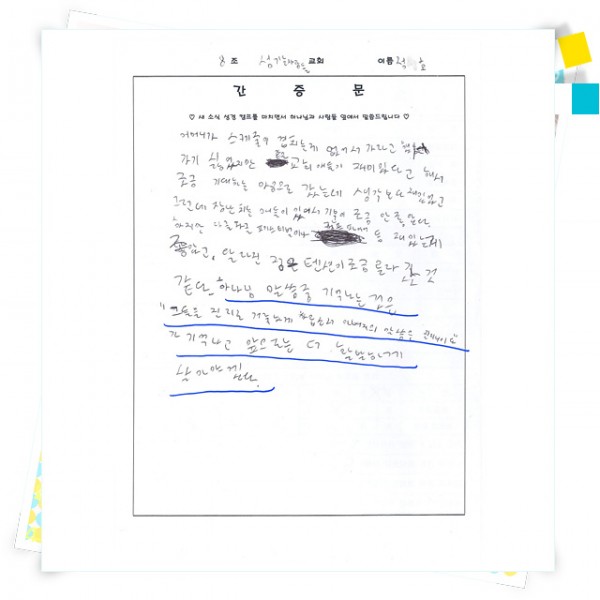 8 조 섬기는사람들 교회 이름
간 증 문
♡ 새 소식 성경 캠프를 마치면서 하나님과 사람들 앞에서 말씀드립니다 ♡
어머니가 스케줄이 겹치는게 없어서 가라고 했
가기 싫었지만 교회 얘들이 재미있다고 해서
조금 기대하는 마음으로 갔는데 생각보다 재밌었고
그런데 장난치는 애들이 있어서 기분이 조금 안 좋았다.
하지만 다음 등 재밌는게
많았고, 달라진 점은 텐션이 조금 올라 간 것
같다. 하나님 말씀중 기억나는 것은
"그들을 진리로 거룩하게 하옵소서 아버지의 말씀은 진리니이다"
가 기억나고 앞으로는 더
살아야겠다.